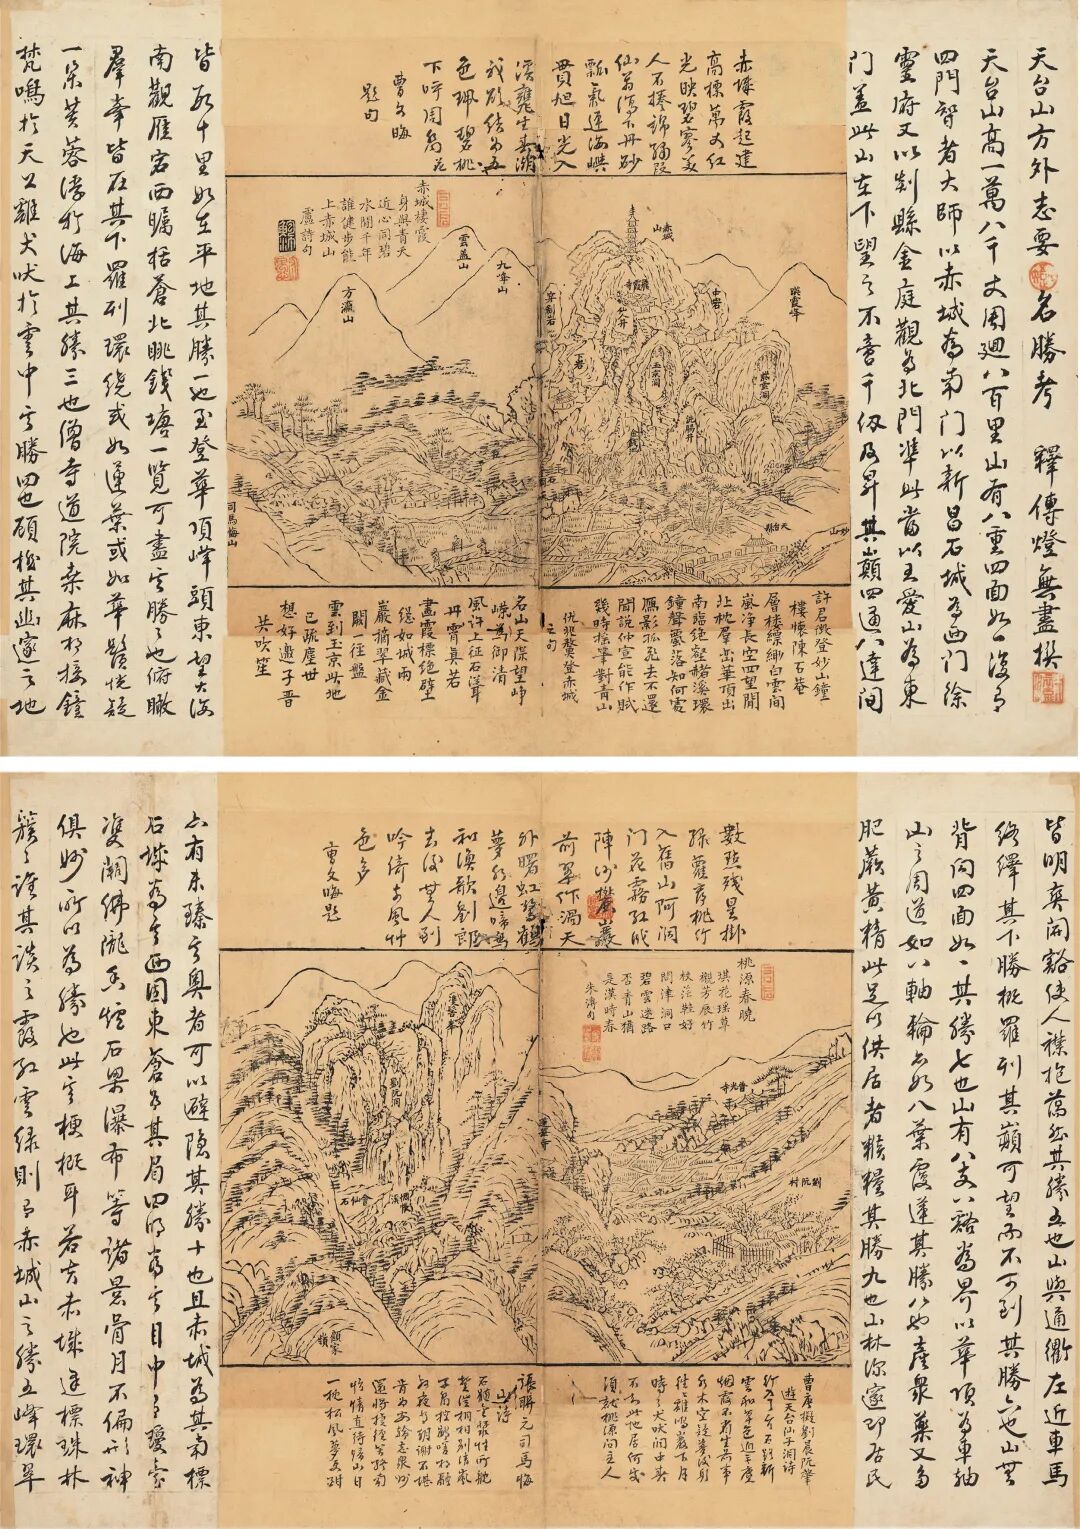 天台山方外志要 名勝考 釋傳燈無盡撰
天台山高一萬八千丈周迴八百里山有八重四面如一後有
四門智者大師以赤城為南门以新昌石城為西門徐
靈府又以剡縣金庭觀為北門準此當以王愛山為東
門蓋此山在下望之不啻千仭及昇其巔四通八達間
赤城霞起建
高標萬丈紅
光映碧寥美
人不捲錦繡段
仙翁瀉下丹砂
瓢氣連海嶼
貫旭日光入
溪
我欲結
色珮碧桃
下呼周
曹文晦
題句
赤城棲霞
身與青天
近心同碧
水閒千年
誰健步能
上赤城山
盧詩句
雲蓋山
九峯山
方瀛山
司馬悔山
赤城山
棲霞峰
中岩
玉京洞
天台縣
許君徵登妙山鐘
樓懷陳石菴
層樓縹緲白雲間
嵐净長空四望開
北枕羣峦華頂出
南臨絕壑赭溪環
鐘聲
鴈影孤飛去不還
聞説仲宣能作賦
幾時搔首對青山
赤城
之句
名山天際望崢
嶸為御清
風許上征石溪
丹霄真若
畫霞標絕壁
總如城雨
巖摘翠藏金
闕一徑盤
雲到玉京此地
已疏塵世
想好邀子晋
共吹笙
皆數十里如在平地其勝一也至登華頂峰頭東望大海
南觀雁宕西矚括蒼北眺錢塘一覽可盡其勝二也俯瞰
羣峯皆在其下羅列環繞或如蓮葉或如華鬚恍疑
一朵芙蓉浮於海上其勝三也僧寺道院桑麻相接鐘
梵鳴於天上雞犬吠於雲中其勝四也顧極其幽邃之地
皆明爽開豁使人襟抱蕩然其勝五也山與通衢左近車馬
絡繹其下勝概羅列其巔可望而不可到其勝六也山無
背向四面如一其勝七也山有八支八谿為界以華頂為車軸
山之周道如八軸輪亦如八葉覆蓮其勝八也產眾藥又多
肥蕨黃精此足以供居者糇糧其勝九也山林深邃即居民
數點殘星掛
綠蘿夜桃竹
入舊山阿洞
门花霧紅成
陣
前翠作渦天
外曙虹
夢
和漁歌劉郎
去後無人到
吟倚東風竹
色多
曹文晦題
桃源春曉
琪花瑤草
襯芳辰竹
杖芒鞋好
問津洞口
碧雲迷路
否青山猶
是漢時春
朱濤句
普光寺
劉阮村
蓮華峯
劉阮洞
會仙石
惆悵溪
曹唐擬劉晨阮肇
遊天台仙子洞詩
樹入天台石路新
雲和草色迥無塵
烟霞不省生前事
水木空疑夢後身
往往雞鳴巖下月
時時犬吠洞中春
不知此地居何處
須就桃源問主人
張聯元司馬悔
山詩
亦有未臻其奧者可以避隐其勝十也且赤城為其南標
石城為其西固東蒼為其眉四明為其目中有瓊臺
雙闕佛隴香爐石梁瀑布等諸景骨月不偏形神
俱妙所以為勝也此其梗概耳若言赤城廷標珠林
簇簇誰其談之霞紅雲綠則有赤城山之勝五峰環翠